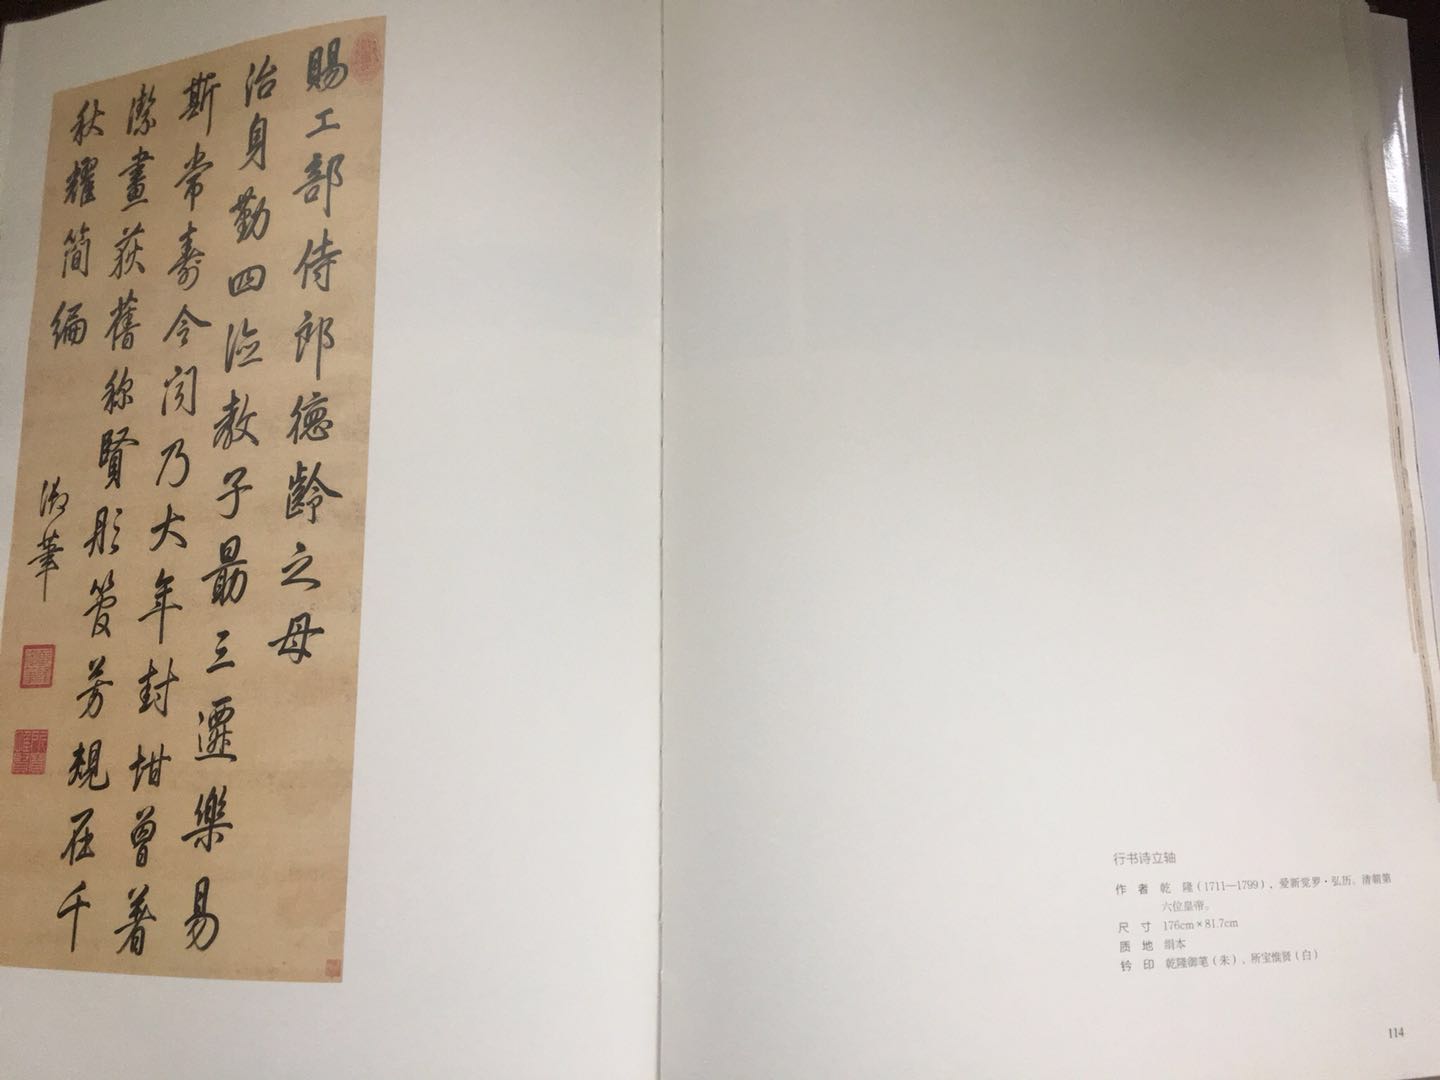 賜工部侍郎德齡之母
治身勤四德教子最三遷樂易
斯常壽令問乃大年封坩曾著
潔畫荻舊称賢彤管芳規在千
秋耀簡編
御筆
行书诗立轴
作 者 乾 隆（1711—1799），爱新觉罗·弘历。清朝第
六位皇帝。
尺 寸 176cm×81.7cm
质 地 绢本
钤 印 乾隆御笔（朱）、所宝惟贤（白）
114